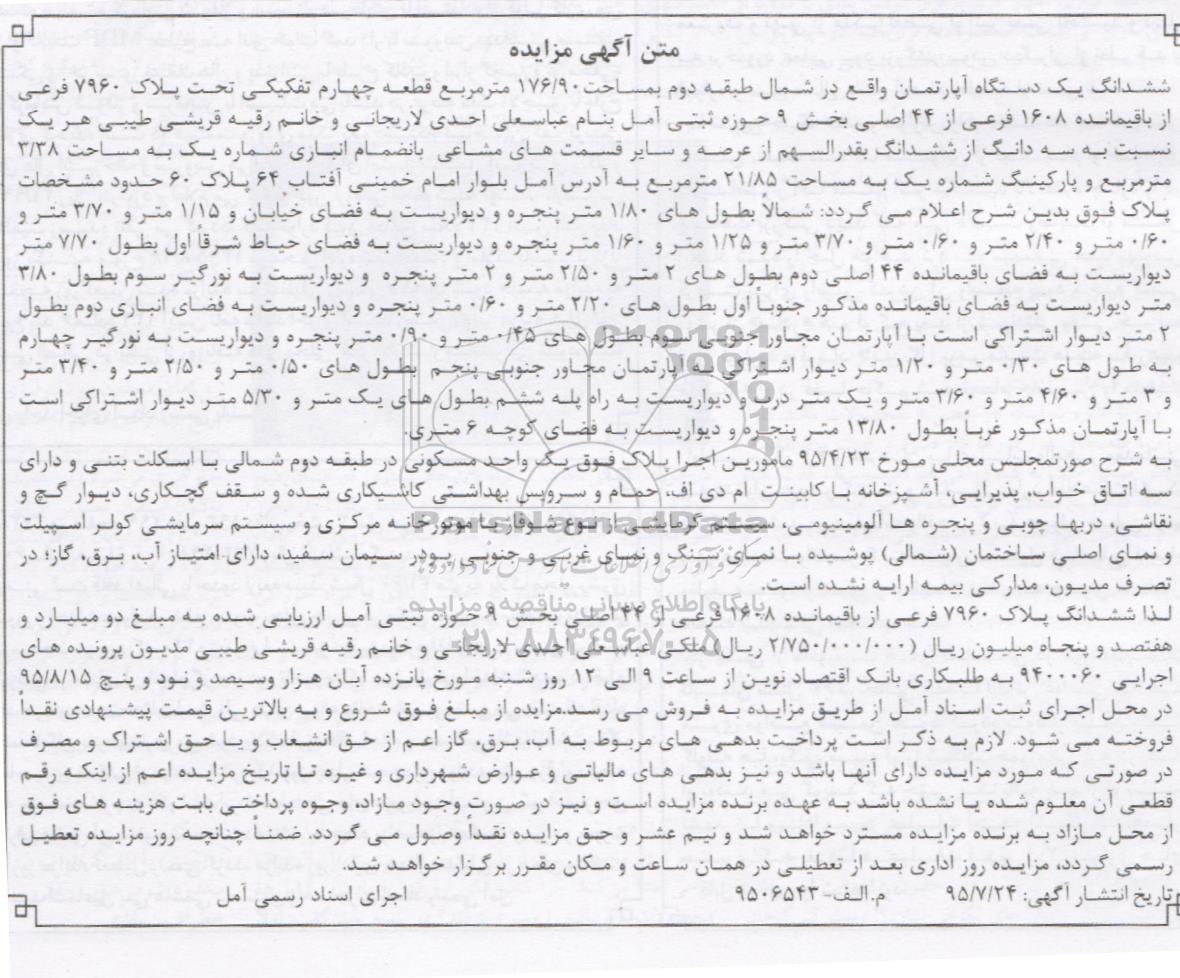 متن آگهی مزایده
ششدانگ یک دستگاه آپارتمان واقع در شمال طبقه دوم بمساحت۱۷۶/۹۰ مترمربع قطعه چهارم تفکیکی تحت پلاک ۷۹۶۰ فرعی
از باقیمانده ۱۶۰۸ فرعی از ۴۴ اصلی بخش ۹ حوزه ثبتی آمل بنام عباسعلی احدی لاریجانی و خانم رقیه قریشی طیبی هر یک
نسبت به سه دانگ از ششدانگ بقدرالسهم از عرصه و سایر قسمت های مشاعی بانضمام انباری شماره یک به مساحت ۳/۳۸
مترمربع و پارکینگ شماره یک به مساحت ۲۱/۸۵ مترمربع به آدرس آمل بلوار امام خمینی آفتاب ۶۴ پلاک ۶۰ حدود مشخصات
پلاک فوق بدین شرح اعلام می گردد: شمالاً بطول های ۱/۸۰ متر پنجره و دیواریست به فضای خیابان و ۱/۱۵ متر و ۳/۷۰ متر و
۰/۶۰ متر و ۲/۴۰ متر و ۰/۶۰ متر و ۳/۷۰ متر و ۱/۲۵ متر و ۱/۶۰ متر پنجره و دیواریست به فضای حیاط شرقاً اول بطول ۷/۷۰ متر
دیواریست به فضای باقیمانده ۴۴ اصلی دوم بطول های ۲ متر و ۲/۵۰ متر و ۲ متر پنجره و دیواریست به نورگیر سوم بطول ۳/۸۰
متر دیواریست به فضای باقیمانده مذکور جنوباً اول بطول های ۲/۲۰ متر و ۰/۶۰ متر پنجره و دیواریست به فضای انباری دوم بطول
۲ متر دیوار اشتراکی است با آپارتمان مجاور جنوبی سوم بطول های ۰/۴۵ متر و ۰/۹۰ متر پنجره و دیواریست به نورگیر چهارم
به طول های ۰/۳۰ متر و ۱/۲۰ متر دیوار اشتراکی به آپارتمان مجاور جنوبی پنجم بطول های ۰/۵۰ متر و ۲/۵۰ متر و ۳/۴۰ متر
و ۳ متر و ۴/۶۰ متر و ۳/۶۰ متر و یک متر درب و دیواریست به راه پله ششم بطول های یک متر و ۵/۳۰ متر دیوار اشتراکی است
با آپارتمان مذکور غرباً بطول ۱۳/۸۰ متر پنجره و دیواریست به فضای کوچه ۶ متری.
به شرح صورتمجلس محلی مورخ ۹۵/۴/۲۳ مامورین اجرا پلاک فوق یک واحد مسکونی در طبقه دوم شمالی با اسکلت بتنی و دارای
سه اتاق خواب، پذیرایی، آشپزخانه با کابینت ام دی اف، حمام و سرویس بهداشتی کاشیکاری شده و سقف گچکاری، دیوار گچ و
نقاشی، دربها چوبی و پنجره ها آلومینیومی، سیستم گرمایشی از نوع شوفاژ با موتورخانه مرکزی و سیستم سرمایشی کولر اسپیلت
و نمای اصلی ساختمان (شمالی) پوشیده با نمای سنگ و نمای غربی و جنوبی پودر سیمان سفید، دارای امتیاز آب، برق، گاز؛ در
تصرف مدیون، مدارکی بیمه ارایه نشده است.
لذا ششدانگ پلاک ۷۹۶۰ فرعی از باقیمانده ۱۶۰۸ فرعی از ۴۴ اصلی بخش ۹ حوزه ثبتی آمل ارزیابی شده به مبلغ دو میلیارد و
هفتصد و پنجاه میلیون ریال (۲/۷۵۰/۰۰۰/۰۰۰ ریال) ملکی عباسعلی احدی لاریجانی و خانم رقیه قریشی طیبی مدیون پرونده های
اجرایی ۹۴۰۰۰۶۰ به طلبکاری بانک اقتصاد نوین از ساعت ۹ الی ۱۲ روز شنبه مورخ پانزده آبان هزار وسیصد و نود و پنج ۹۵/۸/۱۵
در محل اجرای ثبت اسناد آمل از طریق مزایده به فروش می رسد.مزایده از مبلغ فوق شروع و به بالاترین قیمت پیشنهادی نقداً
فروخته می شود. لازم به ذکر است پرداخت بدهی های مربوط به آب، برق، گاز اعم از حق انشعاب و یا حق اشتراک و مصرف
در صورتی که مورد مزایده دارای آنها باشد و نیز بدهی های مالیاتی و عوارض شهرداری و غیره تا تاریخ مزایده اعم از اینکه رقم
قطعی آن معلوم شده یا نشده باشد به عهده برنده مزایده است و نیز در صورت وجود مازاد، وجوه پرداختی بابت هزینه های فوق
از محل مازاد به برنده مزایده مسترد خواهد شد و نیم عشر و حق مزایده نقداً وصول می گردد. ضمناً چنانچه روز مزایده تعطیل
رسمی گردد، مزایده روز اداری بعد از تعطیلی در همان ساعت و مکان مقرر برگزار خواهد شد.
تاریخ انتشار آگهی: ۹۵/۷/۲۴ م.الف- ۹۵۰۶۵۴۳ اجرای اسناد رسمی آمل
ParsNamadData
پایگاه اطلاع رسانی مناقصه و مزایده
۰۲۱-۸۸۳۴۹۶۷۰-۵